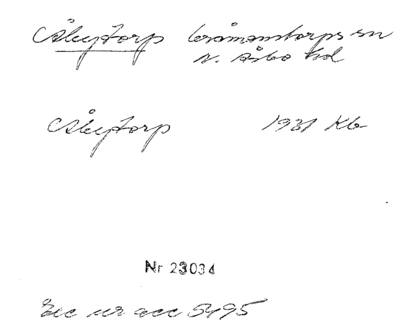 Åbytorp Gråmanstorps sn
N. Åsbo hd
Åbytorp 1931 Kb
Nr 23034
Enl ur acc 3495